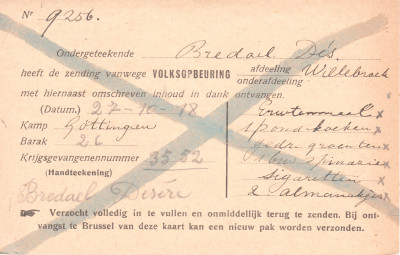 Nr 9256.
Ondergeteekende Bredael Dés.
heeft de zending vanwege VOLKSOPBEURING afdeeling onderafdeeling Willebroek
met hiernaast omschreven inhoud in dank ontvangen.
(Datum.) 27-10-18
Kamp Göttingen
Barak 26
Krijgsgevangenennummer 3552
(Handteekening)
Bredael Désiré
Erwtenmeel x
koeken x
groenten x
x
Sigaretten x
2 almanakjes x
Verzocht volledig in te vullen en onmiddelijk terug te zenden. Bij ont-
vangst te Brussel van deze kaart kan een nieuw pak worden verzonden.